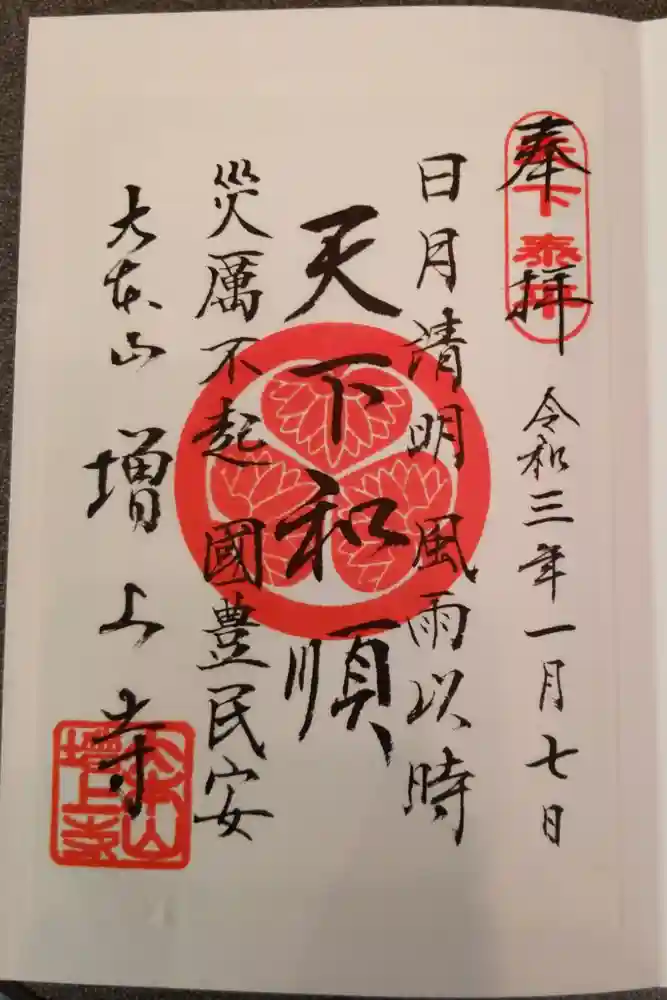 奉拝
天下泰平
令和三年一月七日
日月清明 風雨以時
天下和順
災厲不起 國豊民安
大本山 増上寺
大本山
增上寺